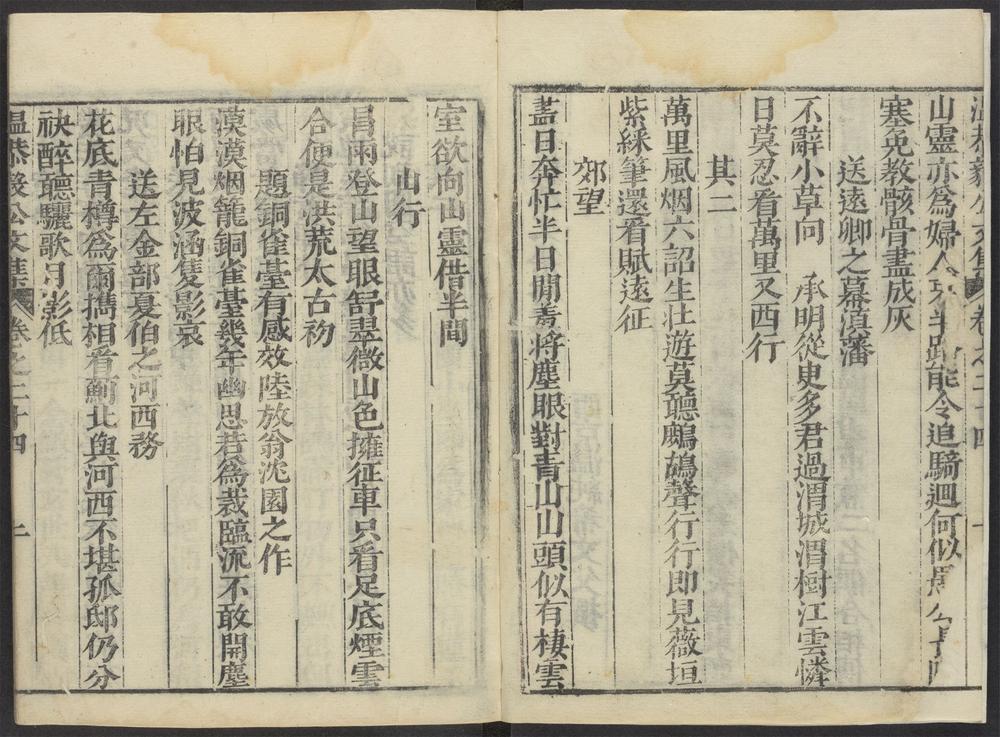 溫恭毅公文集 卷之二十四 一
山靈亦爲婦人 半 能令追騎迴何似 公
塞免教骸骨盡成灰
送遠卿之幕滇藩
不辭小草問 承明從史多君過渭城渭樹江雲憐
日莫忍看萬里又西行
其二
萬里風烟六詔生壮遊莫聽鷓鴣聲行行即見薇垣
紫綵筆還看賦遠征
郊望
盡日奔忙半日閒 將塵眼對青山山頭似有棲雲
室欲向山靈借半間
山行
冒雨登山望眼舒翠微山色擁征車只看足底煙雲
合便是洪荒太古初
題銅雀臺有感效陸放翁沈園之作
漠漠烟籠銅雀臺幾年幽思若爲裁臨流不敢開塵
眼怕見波涵隻影哀
送左金部夏伯之河西務
花底青樽爲爾擕相看薊北與河西不堪孤邸仍分
袂醉聽驪歌月影低
溫恭毅公文集 卷之二十四 二